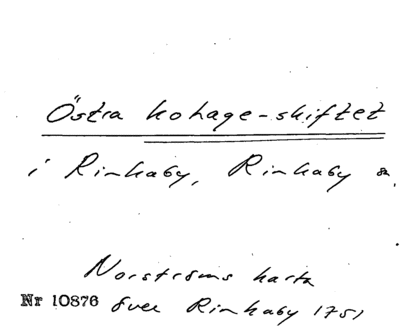 Östra kohage-skiftet
i Rinkaby, Rinkaby sn.
Norströms karta
Nr 10876 över Rinkaby 1751